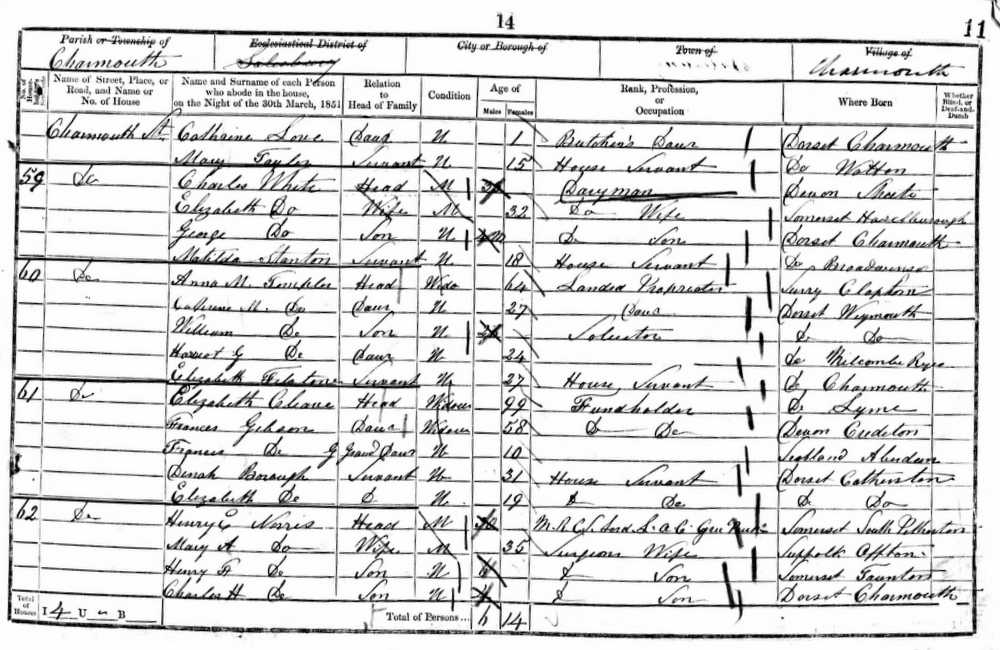 14
11
Parish or Township of
Charmouth
Ecclesiastical District of
City or Borough of
Town of
Village of
Charmouth
Name of Street, Place, or Road, and Name or No. of House
Name and Surname of each Person who abode in the house, on the Night of the 30th March, 1851
Relation to Head of Family
Condition
Age of
Males Females
Rank, Profession, or Occupation
Where Born
Whether Blind, or Deaf-and-Dumb
Charmouth St. Cathrine Love Daur U 1 Butcher's Daur Dorset Charmouth
Mary Taylor Servant U 15 House Servant Do Wotton
59 Do Charles White Head M Dairyman Devon
Elizabeth Do Wife M 32 Do Wife Somerset
George Do Son U Do Son Dorset Charmouth
Matilda Stanton Servant U 18 House Servant Do
60 Do Anna M. Templer Head Wido 64 Landed Proprietor Surry Clapham
Catherine M. Do Daur U 27 Daur Dorset Weymouth
William Do Son U Solicitor Do Do
Harriot G Do Daur U 24 Do Melcombe
Elizabeth Servant U 27 House Servant Do Charmouth
61 Do Elizabeth Cleave Head Widow 99 Fundholder Do Lyme
Frances Gibson Daur Widow 58 Do Do Devon
Frances Do G Grand Daur U 10 Scotland
Dinah Borough Servant U 31 House Servant Dorset Catherston
Elizabeth Do D U 19 D Do D Do
62 Do Henry Norris Head M M.R.C.S. Somerset South Petherton
Mary A Do Wife M 35 Surgeons Wife Suffolk Offton
Henry Do Son U D Son Somerset Taunton
Charles H Do Son U D Son Dorset Charmouth
Total of Houses I 4 U B Total of Persons... 14